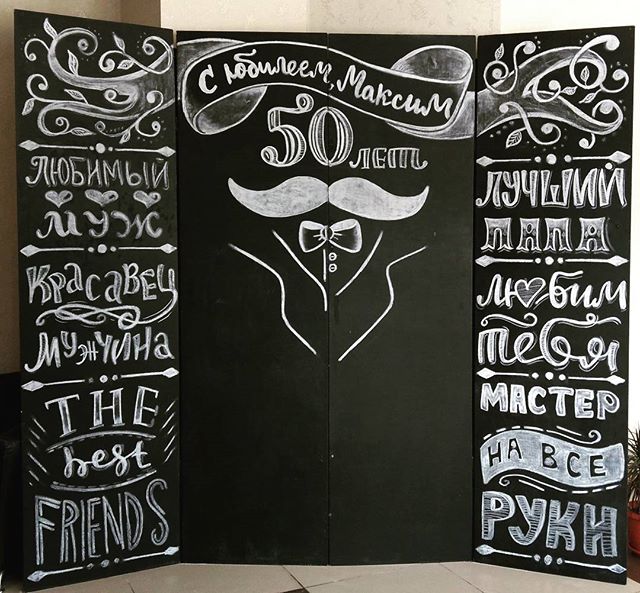 ЛЮБИМЫЙ
МУЖ
КРАСАВЕЦ
МУЖЧИНА
THE
best
FRIENDS
С юбилеем, Максим
50 лет
ЛУЧШИЙ
ПАПА
ЛЮБИМ
тебя
МАСТЕР
НА ВСЕ
РУКИ